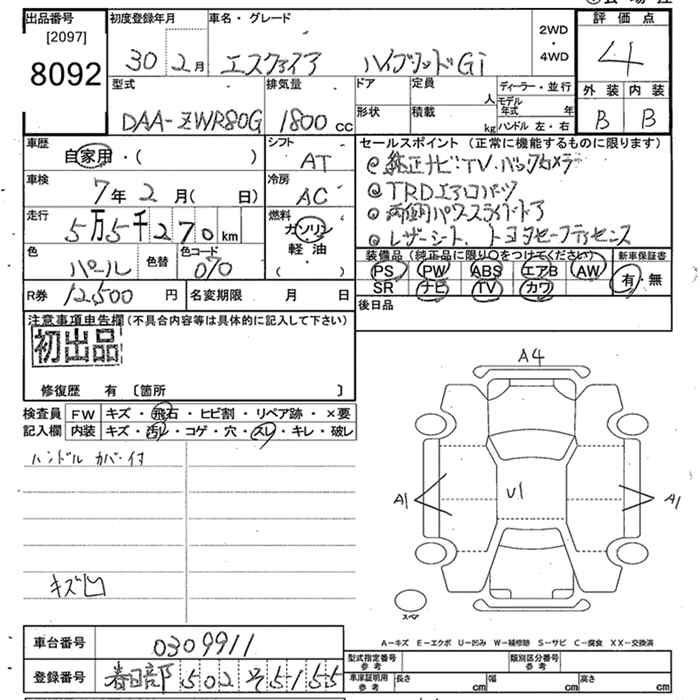 出品番号
[2097]
8092
初度登録年月
30 2月
車名・グレード
エスクァイア ハイブリッドGi
2WD
・
4WD
評価点
4
外装 内装
B B
型式
DAA-ZWR80G
排気量
1800 cc
ドア
形状
定員
人
積載
kg
ディーラー・並行
モデル年式 年
ハンドル 左・右
車歴
自家用・( )
シフト
AT
車検
7年2月( 日)
冷房
AC
走行
5万5千270km
燃料
ガソリン
・
軽油
( )
色
パール
色替
色コード
070
R券 12,500 円
名変期限 月 日
セールスポイント (正常に機能するものに限ります)
純正ナビ・TV・バックカメラ
TRDエアロパーツ
両側パワースライドドア
レザーシート、トヨタセーフティセンス
装備品 (純正品に限り○をつけてください)
新車保証書
PS PW ABS エアB AW
SR ナビ TV カワ
有・無
後日品
注意事項申告欄 (不具合内容等は具体的に記入して下さい)
初出品
修復歴 有 〔箇所 〕
検査員記入欄
FW キズ・飛石・ヒビ割・リペア跡・×要
内装 キズ・汚レ・コゲ・穴・スレ・キレ・破レ
ハンドルカバー付
キズ凹
A4
A1
U1
A1
スペア
A-キズ E-エクボ U-凹み W-補修跡 S-サビ C-腐食 XX-交換済
車台番号 0309911
登録番号 春日部 502 そ 5155
型式指定番号 参考
類別区分番号 参考
車庫証明用 参考
長さ cm
幅 cm
高さ cm